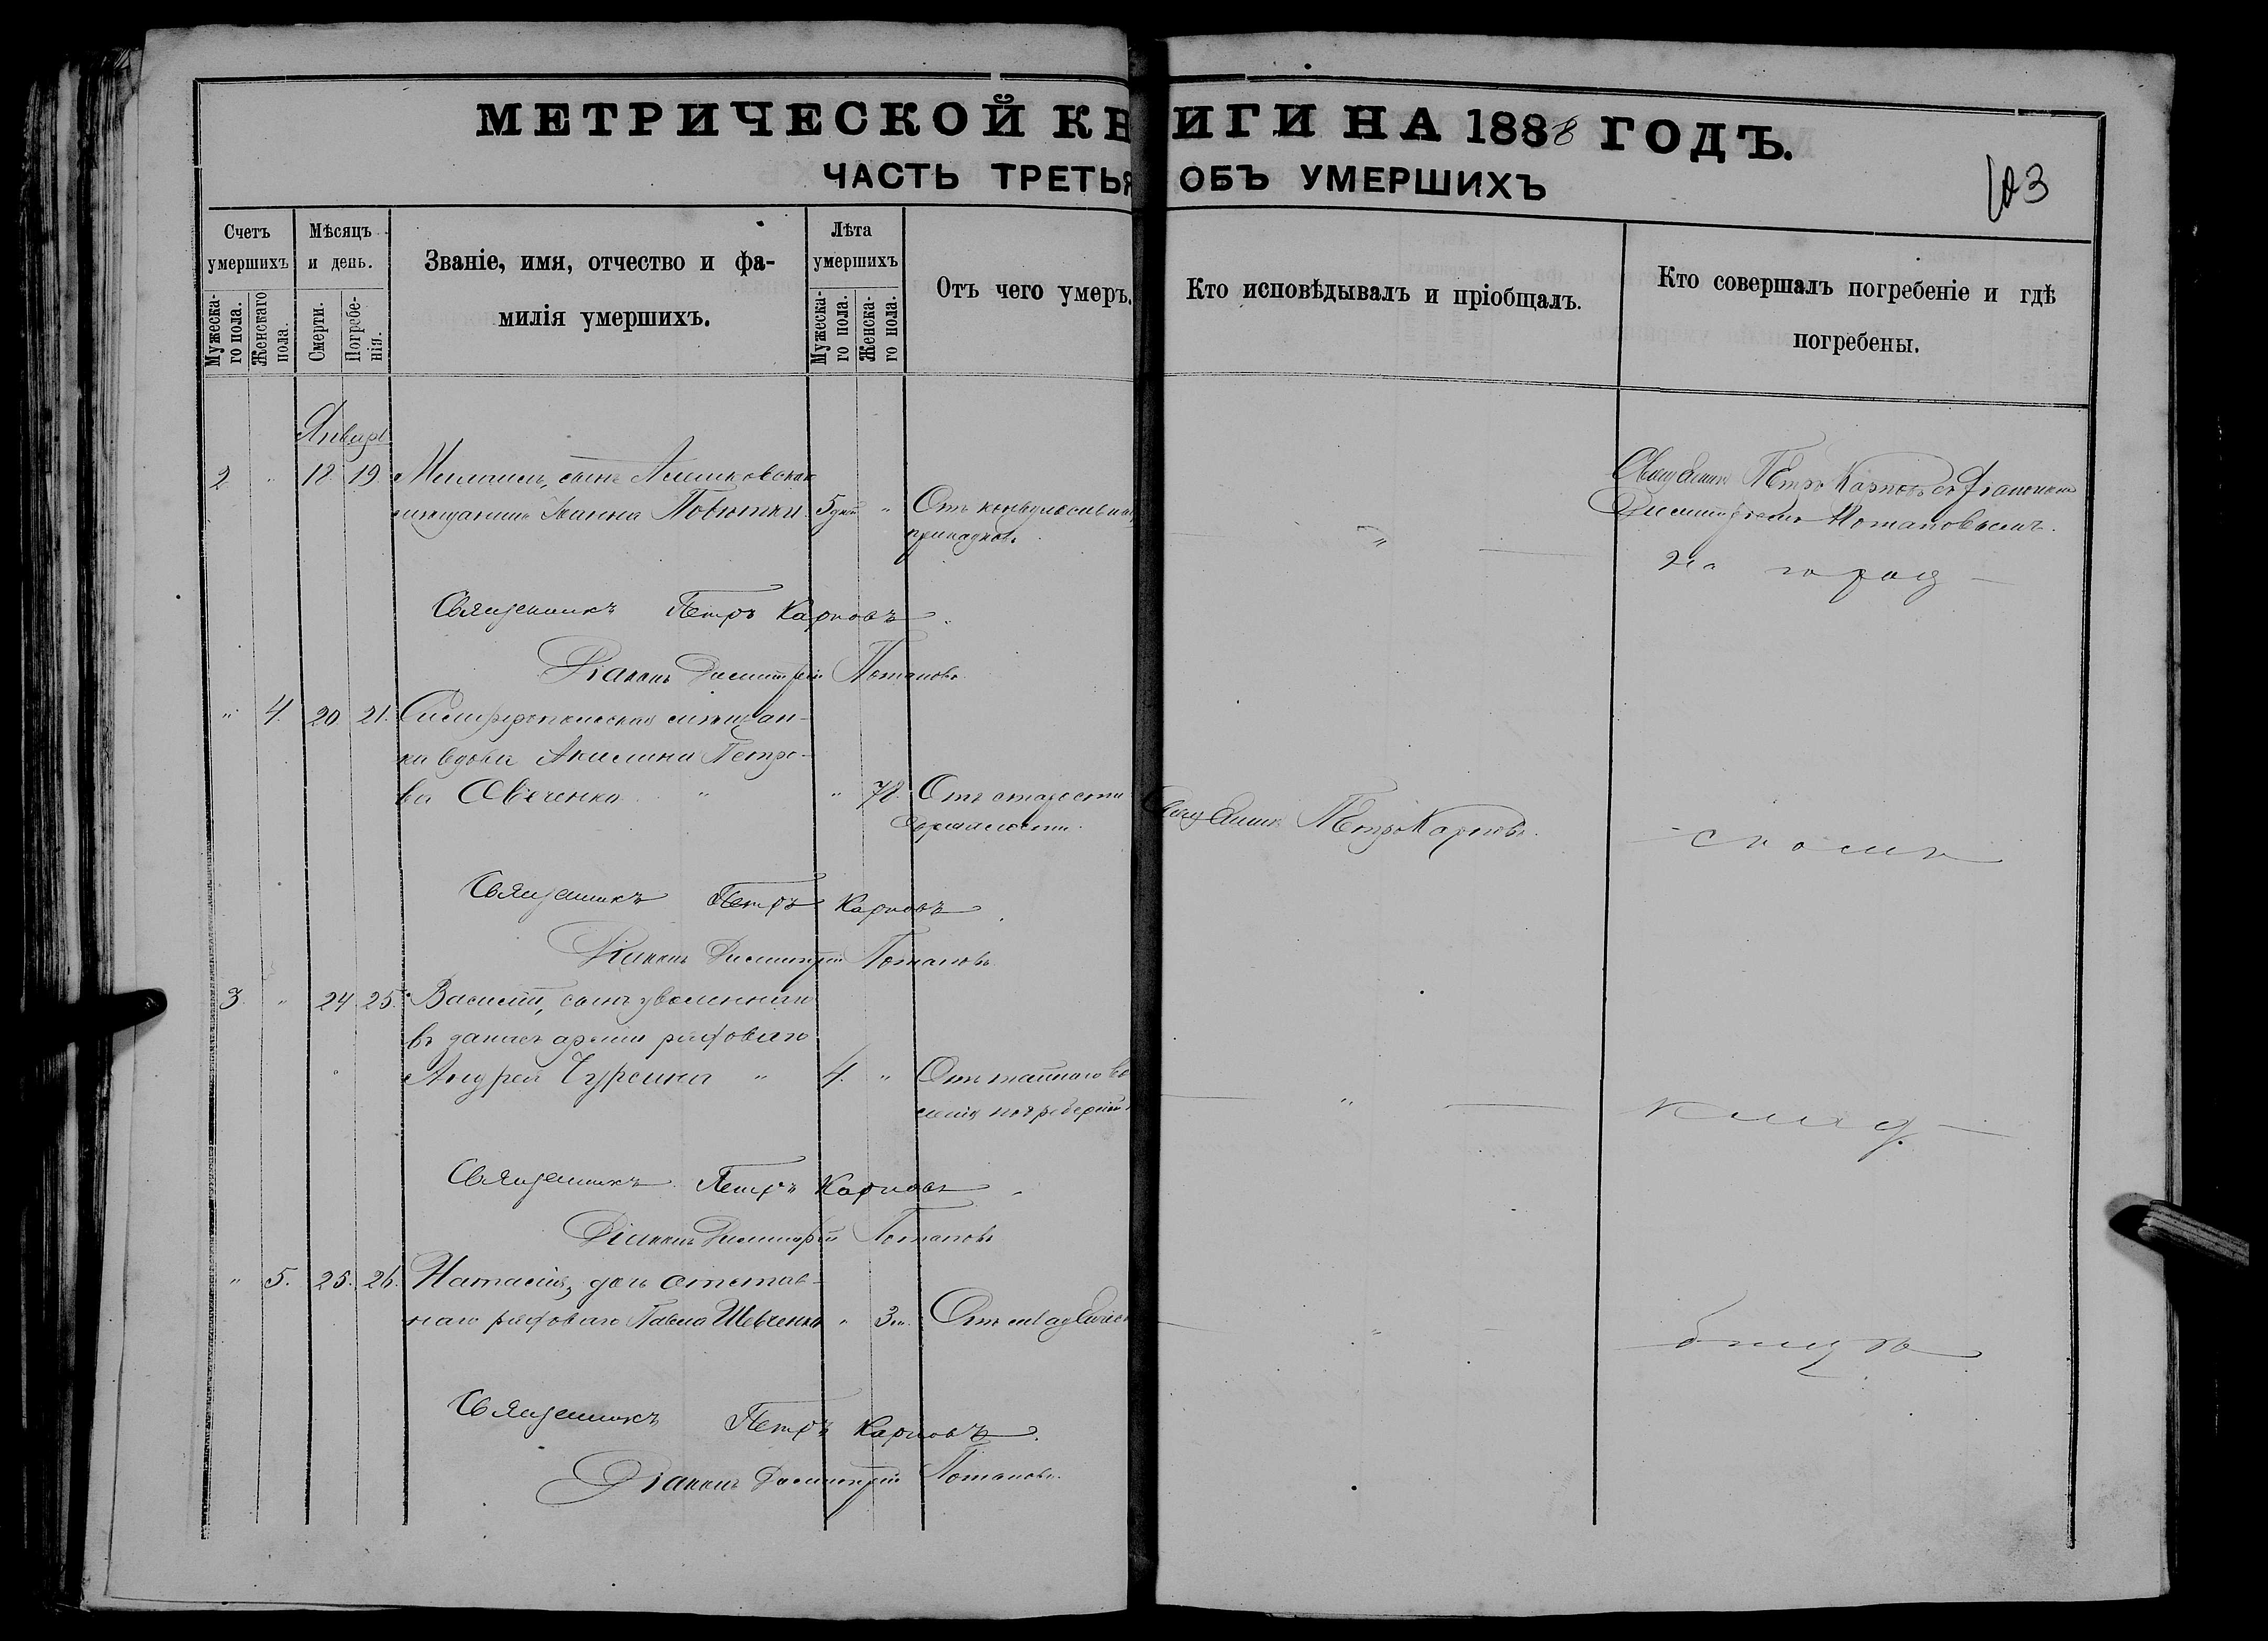 МЕТРИЧЕСКОЙ КН ИГИ НА 1888 ГОДЪ.
ЧАСТЬ ТРЕТЬЯ ОБЪ УМЕРШИХЪ
103
Счетъ умершихъ
Мужеска-го пола.
Женскаго пола.
Мѣсяцъ и день.
Смерти.
Погребе-нія.
Званіе, имя, отчество и фа-
милія умершихъ.
Лѣта умершихъ
Мужеска-го пола.
Женска-го пола.
Отъ чего умеръ.
Кто исповѣдывалъ и пріобщалъ.
Кто совершалъ погребеніе и гдѣ
погребены.
Январь
2 " 18 19 сынъ Алешковскаго
мѣщанина Іоанна 5 дней " Отъ конвульсивныхъ
припадковъ.
"
Священникъ Петръ Карповъ съ Діакономъ
Димитріемъ Потаповымъ.
на город
Священникъ Петръ Карповъ.
Діаконъ Димитрій Потаповъ
" 4. 20. 21. Симферопольская мѣщан-
ка вдова Акилина Петро-
ва Овеченко " " 78. Отъ старости
Священникъ Петръ Карповъ.
скомъ
Священникъ Петръ Карповъ.
Діаконъ Димитрій Потаповъ
3. " 24. 25. Василій, сынъ уволеннаго
въ запасъ арміи рядоваго
Андрея Чурсина " 4. " Отъ
"
клад
Священникъ Петръ Карповъ.
Діаконъ Димитрій Потаповъ
" 5. 25. 26. Наталія, дочь отстав-
наго рядоваго Павла Шевченко " 3 м. Отъ младенческ
"
бищѣ
Священникъ Петръ Карповъ.
Діаконъ Димитрій Потаповъ.